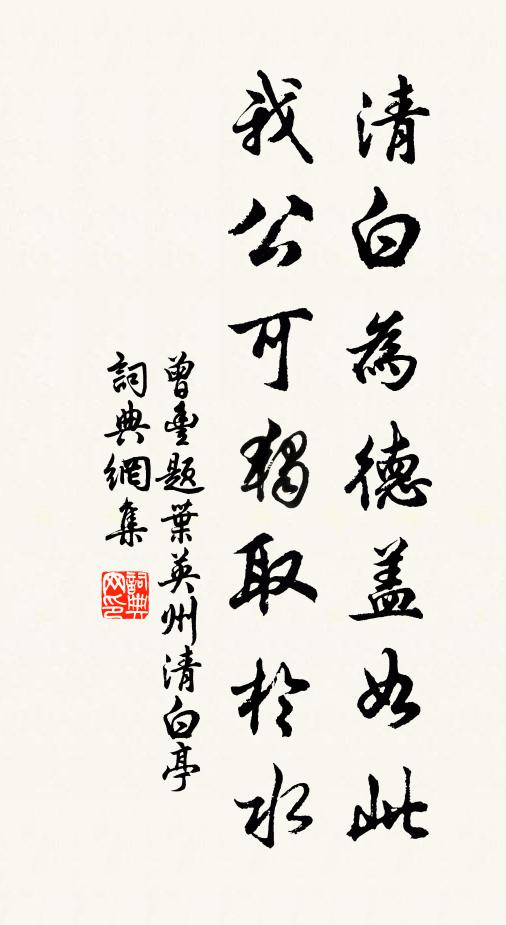 清白為德盖如此
我公可獨取於水
曾豊題葉英州清白亭
詞典網集
詞典網印